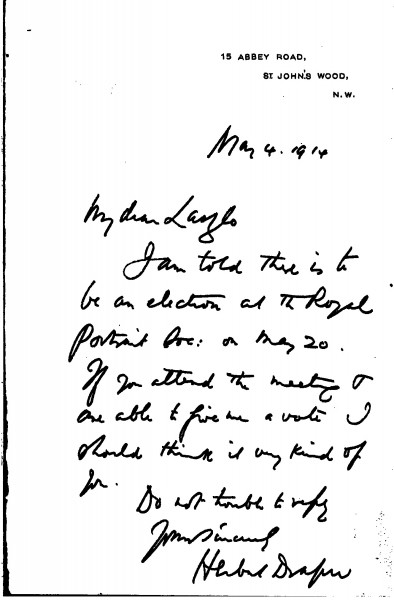 15 ABBEY ROAD,
ST JOHN'S WOOD,
N.W.
May 4. 1914
My dear Laszlo
I am told there is to
be an election at the Royal
Portrait Soc: on May 20.
If you attend the meeting &
are able to give me a vote I
should think it very kind of
you.
Do not trouble to reply
Yours sincerely
Herbert Draper